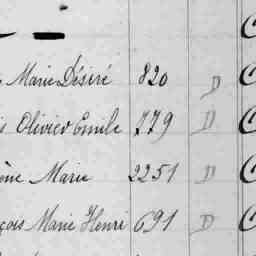 Marie Désiré 820 D C
Olivier Emile 779 D C
Marie 2251 D C
Marie Henri 691 D C